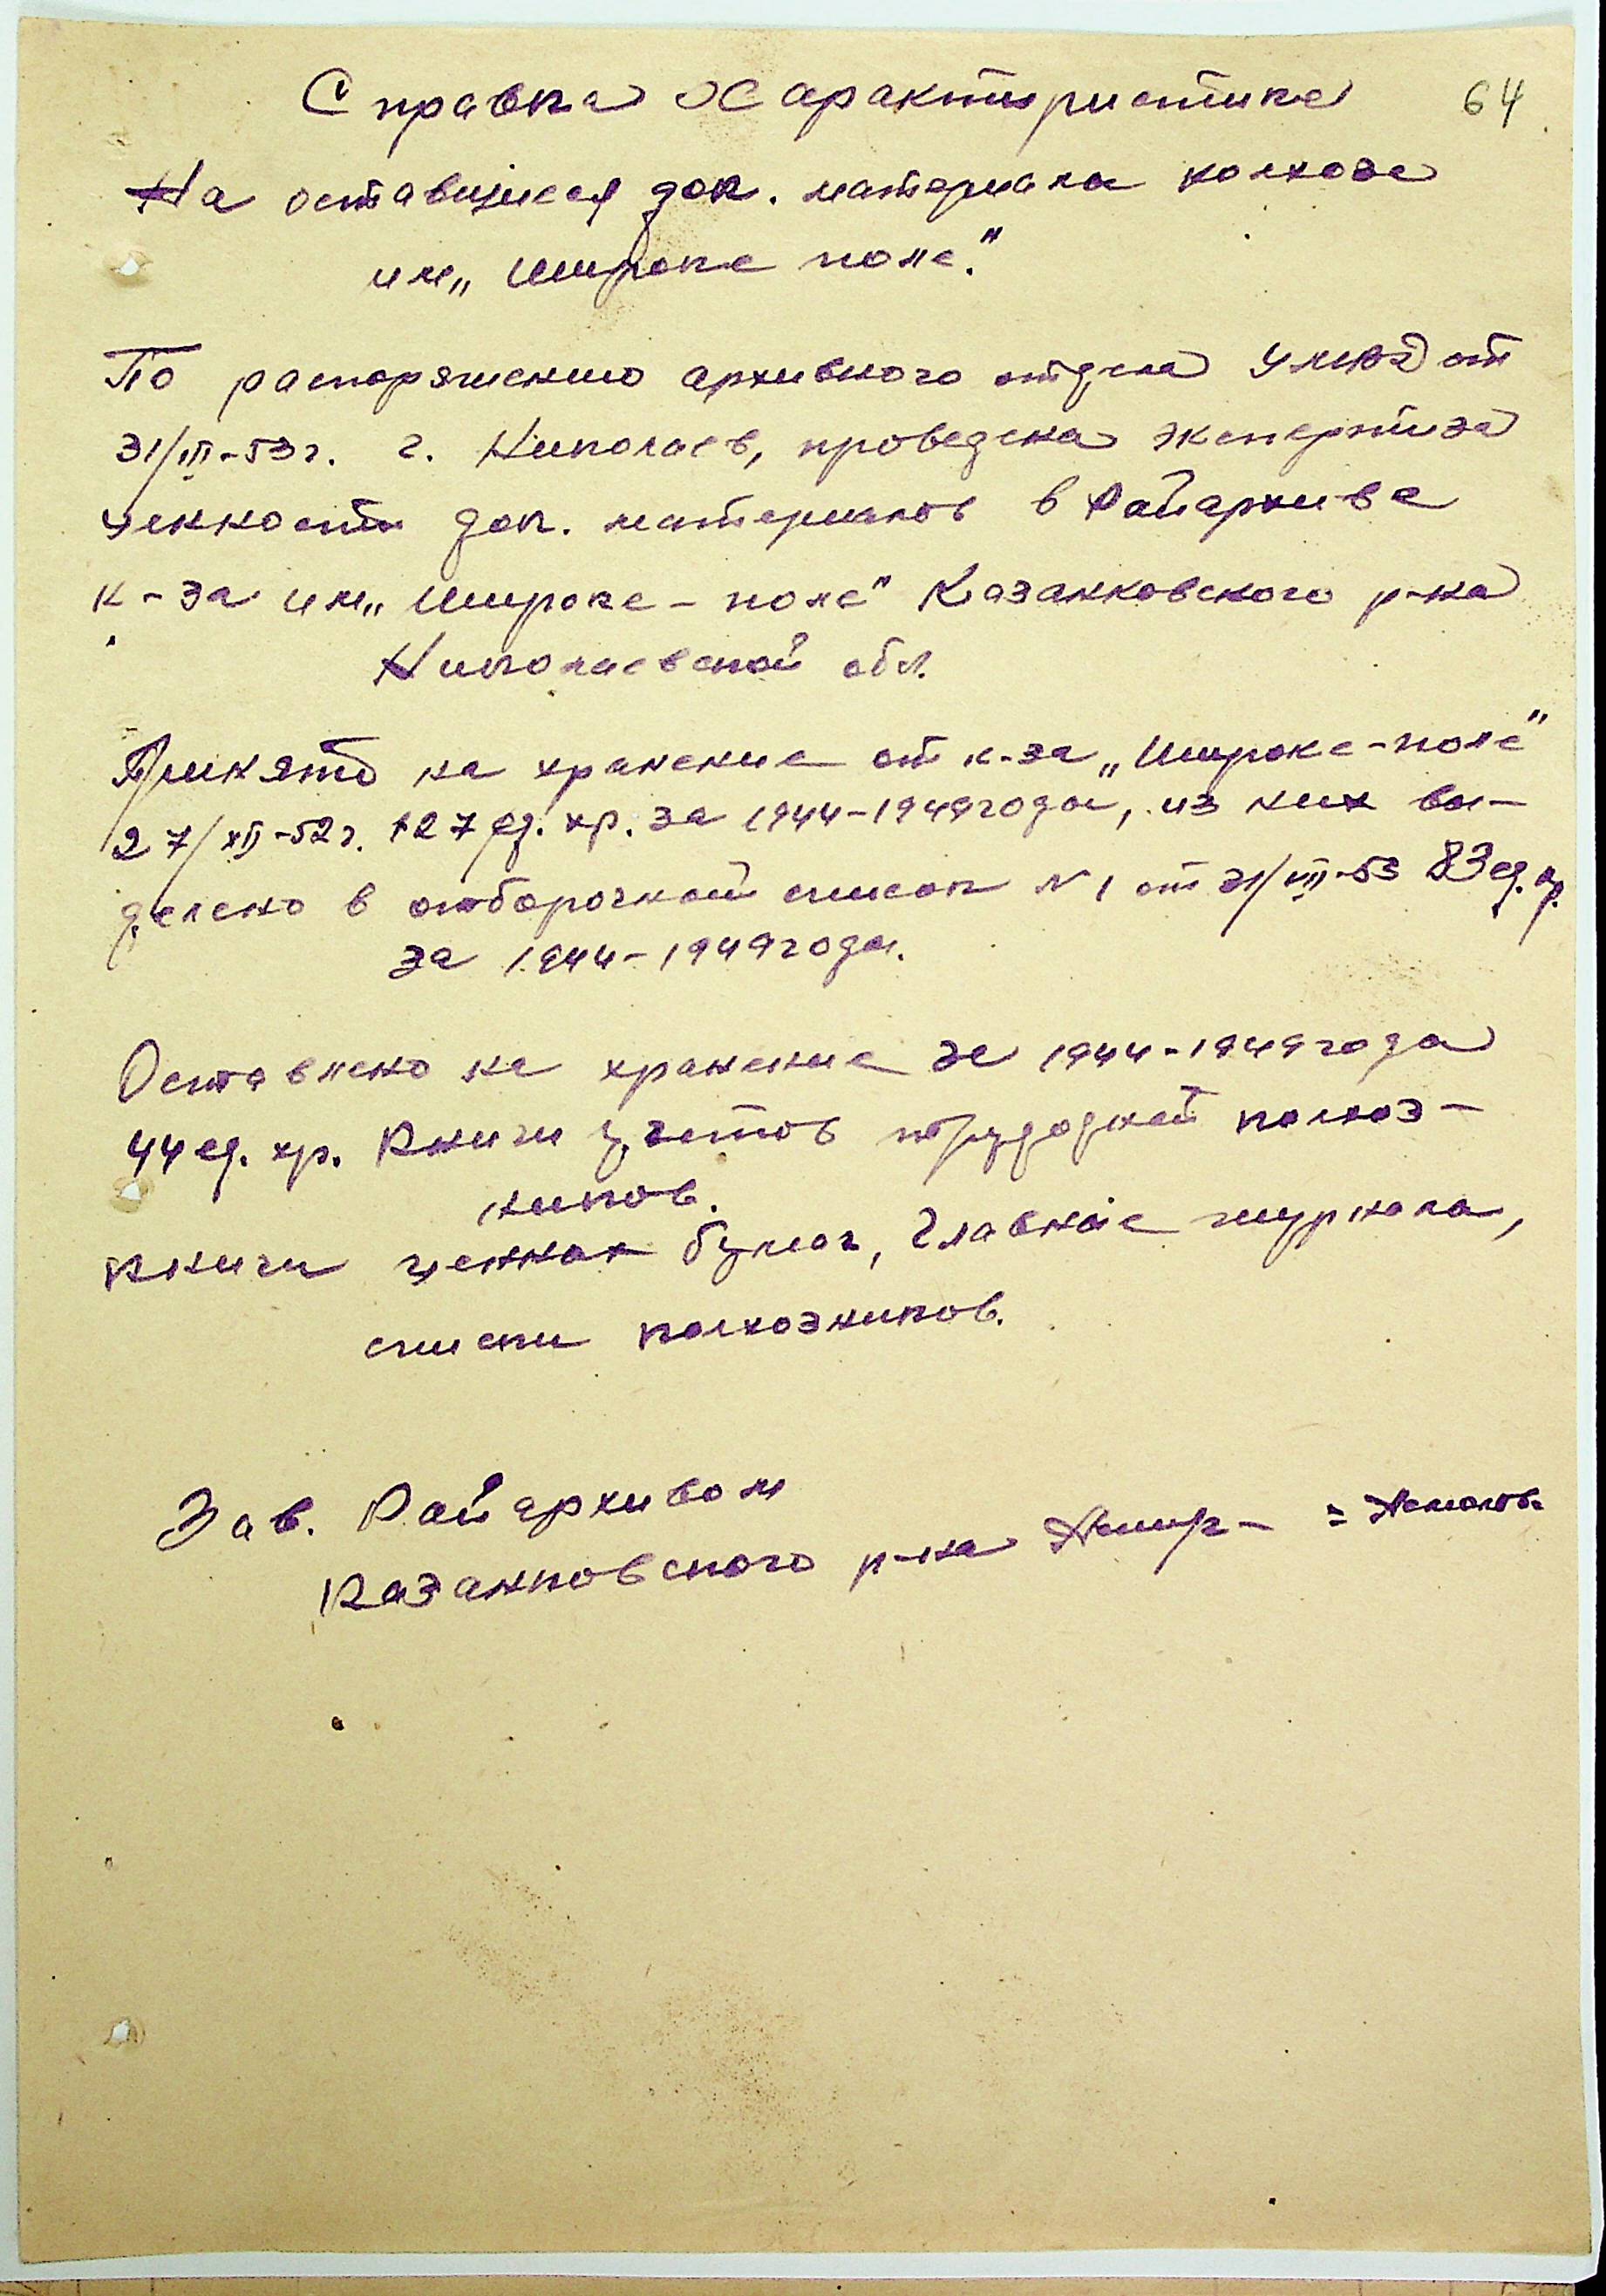 Справка Характиристика
64
На оставшиеся док. материалы колхоза
им „Широке поле."
По распоряжению архивного отдела УМВД от
31/III-53г. г. Николаев, проведена экспертиза
ценности док. материалов в Райархиве
к-за им „Широке-поле" Казанковского р-на
Николаевской обл.
Принято на хранение от к-за „Широке-поле"
27/XII-52г. 127 ед. хр. за 1944-1949 годы, из них вы-
делено в отборочный список N 1 от 31/III-53 83 ед. хр.
за 1944-1949 годы.
Оставлено на хранение за 1944-1949 года
44 ед. хр. Книги учетов трудодней колхоз-
ников.
Книги ценных бумаг, Главные журнала,
списки колхозников.
Зав. Райархивом
Казанковского р-на